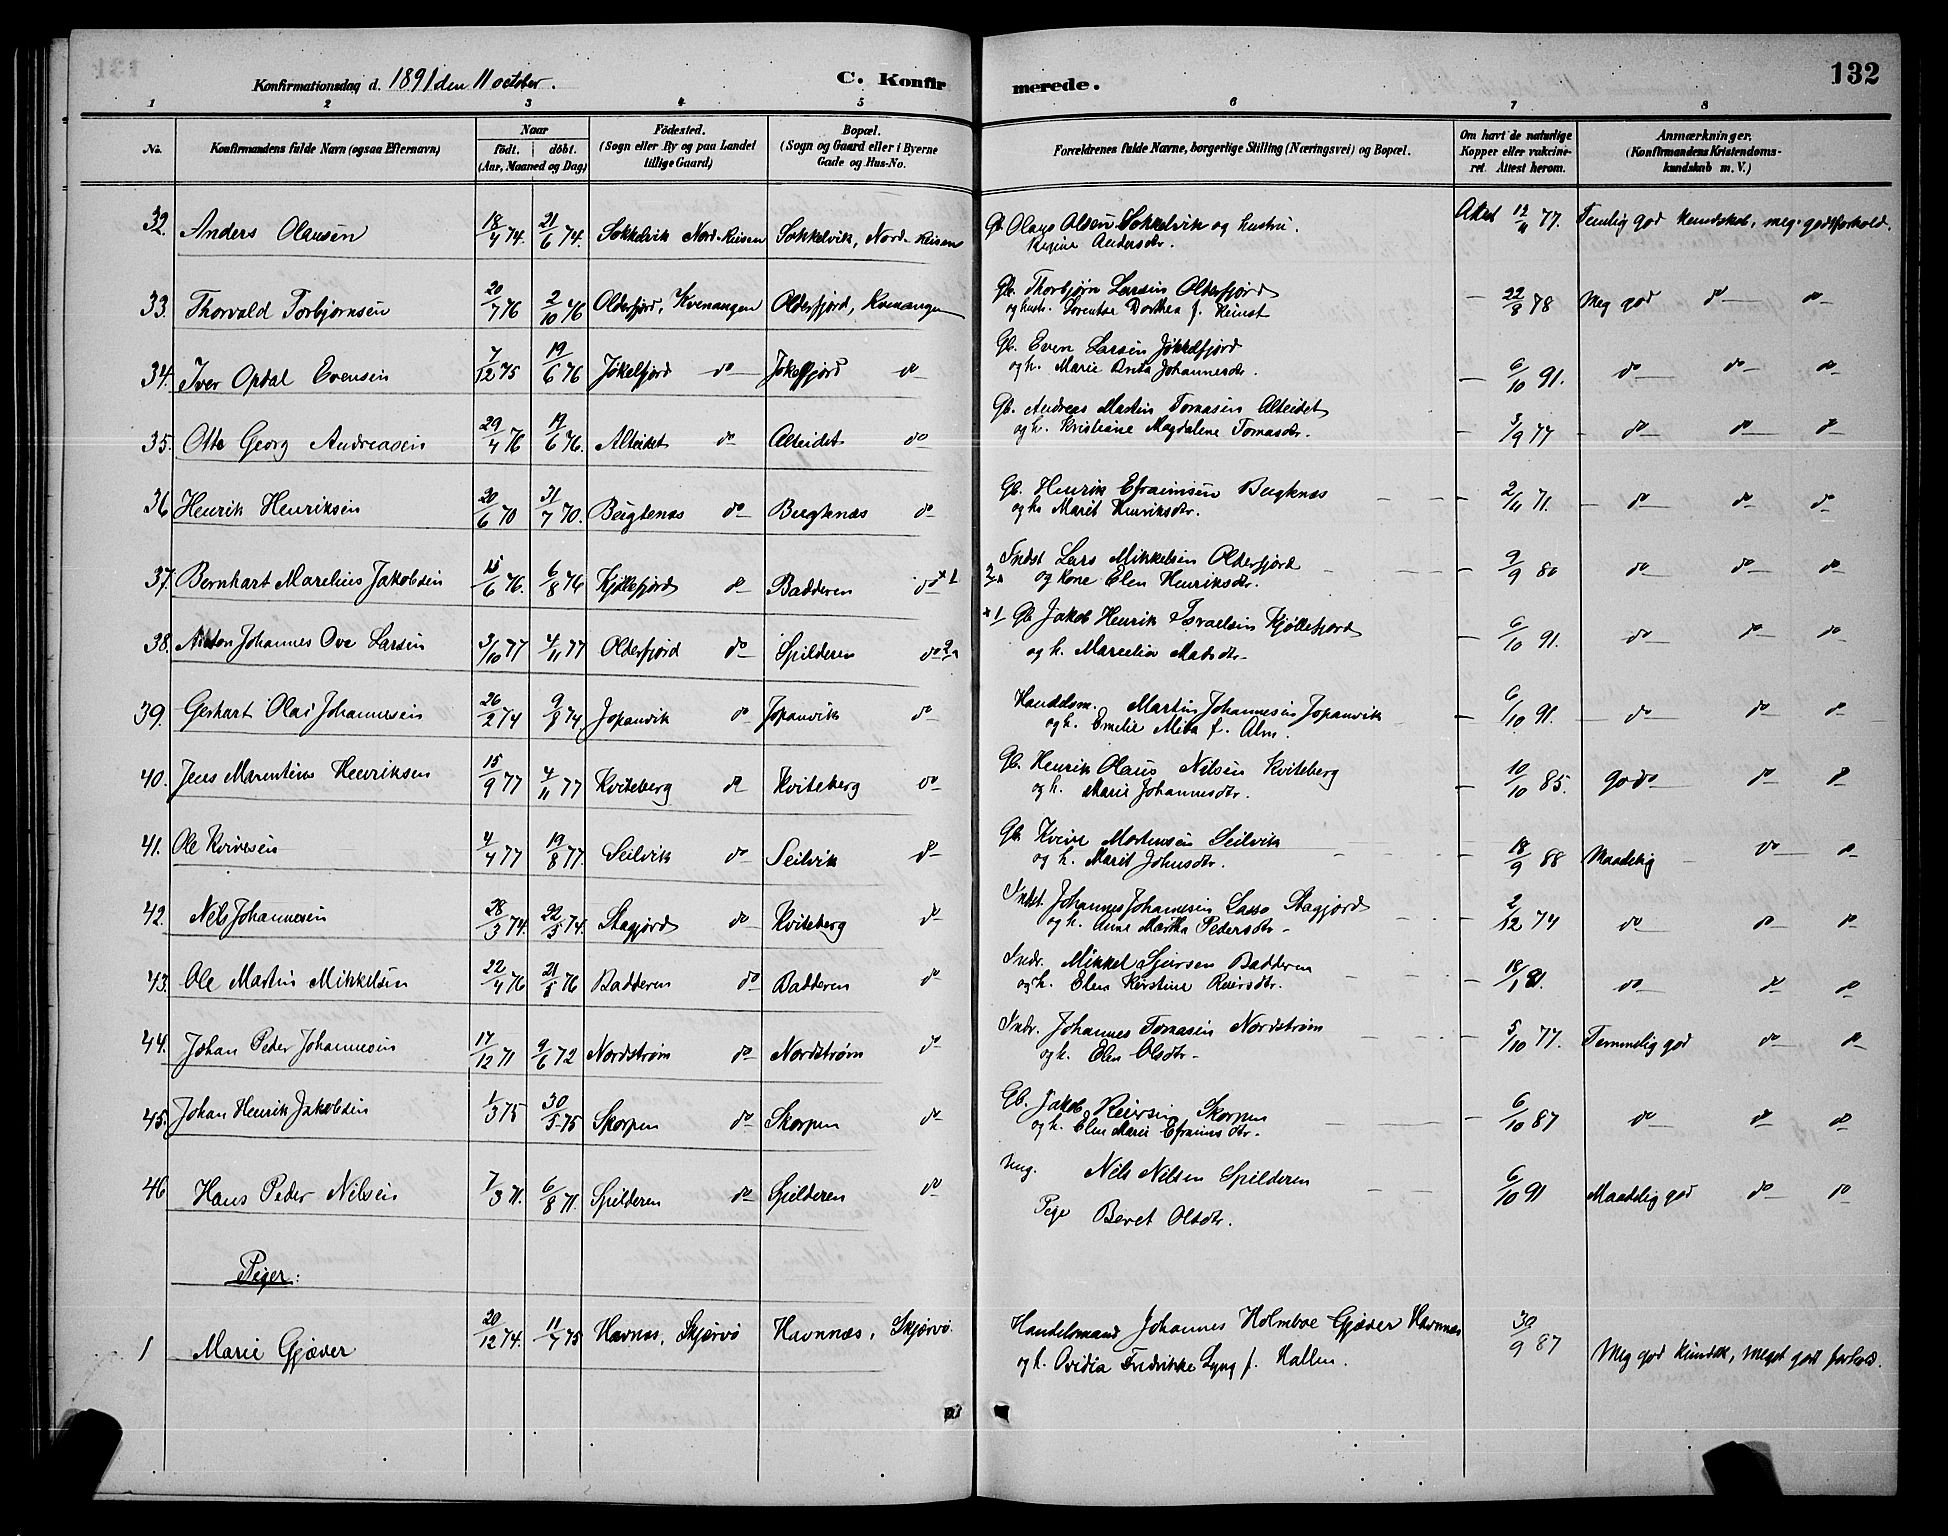 Konfirmationsdag d. 1891 den 11 october. C. Konfirmerede. 132
1 2 3 4 5 6 7 8
No. Konfirmandens fulde Navn (ogsaa Efternavn) Naar født. døbt. (Aar, Maaned og Dag) Fødested. (Sogn eller By og paa Landet tillige Gaard) Bopæl. (Sogn og Gaard eller i Byerne Gade og Hus-No. Forældrenes fulde Navne, borgerlige Stilling (Næringsvei) og Bopæl. Om havt de naturlige Kopper eller vakcineret. Attest herom. Anmærkninger. (Konfirmandens Kristendomskundskab m. V.)
32. Anders Olausen 18/4 74. 21/6 74. Sokkelvik Nord-Reisen Sokkelvik, Nord-Reisen Gb. Olaus Olsen Sokkelvik og hustru. 77. Temlig god kundskab, meg. godt forhold.
Regine Andersdr.
33. Thorvald Torbjørnsen 20/7 76 2/10 76 Olderfjord, Kvenangen Olderfjord, Kvenangen Gb. Thorbjørn Larsen Olderfjord — 22/8 78 Meg god do do
og hustr. Lorentse Dorthea f.
34. Iver Opdal Evensen 7/12 75 19/6 76 Jøkelfjord do Jøkelfjord do Gb. Even Larsen Jøkkelfjord
og h. Marie Johannesdr. — 6/10 91. do do do
35. Otto Georg Andreasen 29/4 76 /6 76. Alteidet do Alteidet do Gb. Andreas Martin Tomasen Alteidet
og h. Kristiane Magdalene Tomasdr. — 3/9 77 do do do
36 Henrik Henriksen 20/6 70 31/7 70. Bergtenæs do Bugtenæs do Gb. Henrik Efraimsen — 2/11 71. do do do
og h. Marit Henriksdr.
37. Bernhart Marelius Jakobsen 15/6 76. 6/8 76 Kjøllefjord do Badderen do *1 Indst Lars Mikkelsen Olderfjord — 9/9 80 do do do
og kone Elen Henriksdr.
38. Anton Johannes Ove Larsen 3/10 77 4/11 77 Olderfjord do Spilderen do *1 Gb Jakob Henrik Israelsen Kjøllefjord — 6/10 91. do do do
og h. Marcelia Matsdr.
39. Gerhart Olai Johannesen 26/2 74 9/8 74 Jopanvik do Jopanvik do Handelsm. Martin Johannesen Jopanvik — 6/10 91. do do do
og h. Emelie Meta f. Alm.
40. Jens Marentius Henriksen 15/9 77 4/11 77 Kviteberg do Kviteberg do Gb. Henrik Olaus Nilsen Kviteberg — 10/10 85. god do do
og h. Marie Johannesdr.
41. Ole Kvivesen 4/4 77 19/8 77. Seilvik do Seilvik do Gb. Kvive Mortensen Seilvik — 18/9 88 Maadelig do do
og h. Marit Johnsdr.
42. Nils Johannesen 28/3 74. 22/5 74. Stagjord do Kviteberg do Indst. Johannes Johannesen Lasso Stagjord — 2/12 74 do do do
og h. Anne Martha Pedersdr.
43. Ole Martin Mikkelsen 22/4 76 21/5 76 Badderen do Badderen do Indr. Mikkel Sjursen Badderen — 18/1 81. do do do
og h. Elen Kerstine Reiersdr.
44. Johan Peder Johannesen 17/12 71 9/6 72 Nordstrøm do Nordstrøm do Indr. Johannes Tomasen Nordstrøm — 5/10 77. Temmelig god do do
og h. Elen Olsdr.
45. Johan Henrik Jakobsen 1/3 75 30/5 75 Skorpen do Skorpen do Gb. Jakob Reiersen Skorpen — 6/10 87 do do do
og h. Elen Marie Efraimsdr.
46 Hans Peder Nilsen 7/3 71. 6/8 71. Spilderen do Spilderen do Ung. Nils Nilsen Spilderen — 6/10 91 Maadelig god do do
Pige Beret Olsdr.
Piger:
1 Marie Gjæver 20/12 74. 11/7 75 Havnæs, Skjærvø Havnnæs, Skjærvø. Handelsmand Johannes Holmboe Gjæver Havnnæs 30/9 87 Meg god kundsk, meget godt forhold.
og h. Ovidia Fredrikke Lyng f. Hallen.